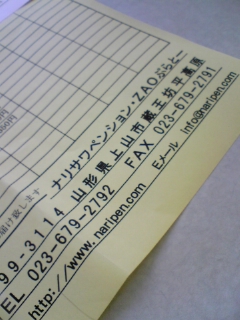 届け致します
ナリサワペンション・ZAOぷらとー
99-3114 山形県上山市蔵王坊平高原
TEL 023-679-2792 FAX 023-679-2791
http://www.naripen.com Eメール info@naripen.com